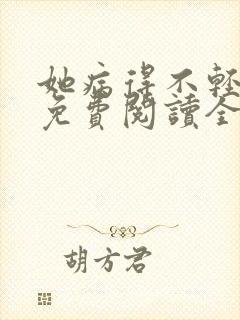 她病得不轻
免費閱讀全
胡方君